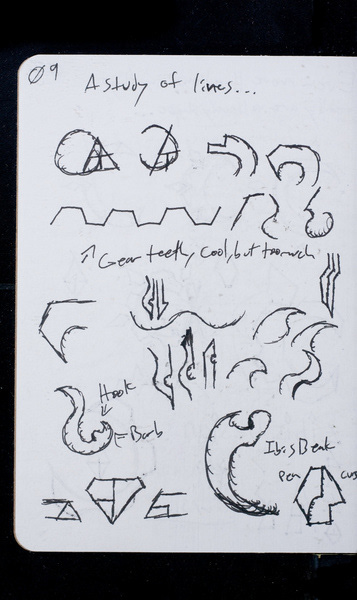 Ø9
A study of lines...
↗ Gear teeth, cool, but too much
Hook
Barb
Ibis Beak
Pen